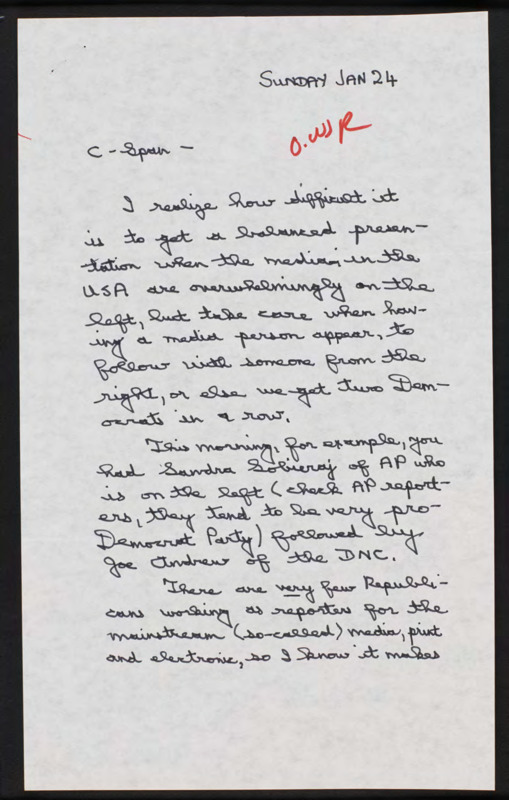 SUNDAY JAN 24
C-Span -
I realize how difficult it
is to get a balanced presen-
tation when the media, in the
USA are overwhelmingly on the
left, but take care when hav-
ing a media person appear, to
follow with someone from the
right, or else we get two Dem-
ocrats in a row.
This morning, for example, you
had Sandra Sobieraj of AP who
is on the left (check AP report-
ers, they tend to be very pro-
Democrat Party) followed by
Joe Andrew of the DNC.
There are very few Republi-
cans working as reporters for the
mainstream (so-called) media, print
and electronic, so I know it makes